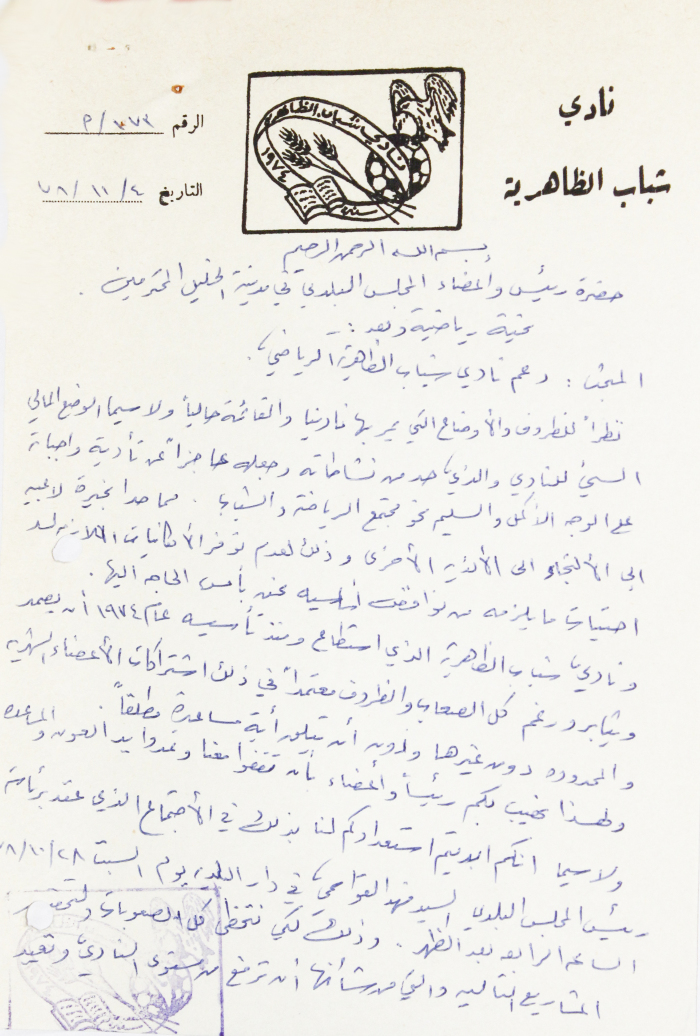 نادي
شباب الظاهرية
الرقم ٩/٢٧٣
التاريخ ٧٨/١١/٤
نادي شباب الظاهرية
١٩٧٤
بسم الله الرحمن الرحيم
حضرة رئيس واعضاء المجلس البلدي في مدينة الخليل المحترمين .
تحية رياضية وبعد :ـ
المبحث : دعم نادي شباب الظاهرية الرياضي .
نظراً للظروف والأوضاع التي يمر بها نادينا والقائمة حالياً ولاسيما الوضع المالي
السيئ للنادي والذي حد من نشاطاته وجعله عاجزاً عن تأدية واجباته
على الوجه الأكمل والسليم نحو مجتمع الرياضة والشباب . مما حدا بخيرة لاعبيه
الى الألتجاء الى الأندية الأخرى وذلك لعدم توفر الأمكانيات اللازمة لسد
احتياجات ما يلزمه من نواقص أساسيه نحن بأمس الحاجه اليها .
ونادي شباب الظاهرية الذي استطاع ومنذ تأسيسه عام ١٩٧٤ أن يصمد
ويثابر ورغم كل الصعاب والظروف معتمداً في ذلك اشتراكات الأعضاء الشهرية
والمحدوده دون غيرها ودون أن يتلق أية مساعدة مطلقاً .
ولهذا نهيب بكم رئيساً وأعضاء بأن تقفوا معنا وتمدوا يد العون والمساعده
ولاسيما انكم ابديتم استعدادكم لنا بذلك في الأجتماع الذي عقد برئاسة
رئيس المجلس البلدي السيد فهد القواسمي في دار البلدية يوم السبت ٧٨/١٠/٢٨
الساعه الرابعه بعد الظهر . وذلك لكي نتخطى كل الصعوبات
المشاريع التاليه والتي من شأنها أن ترفع من مستوى النادي وتعيد